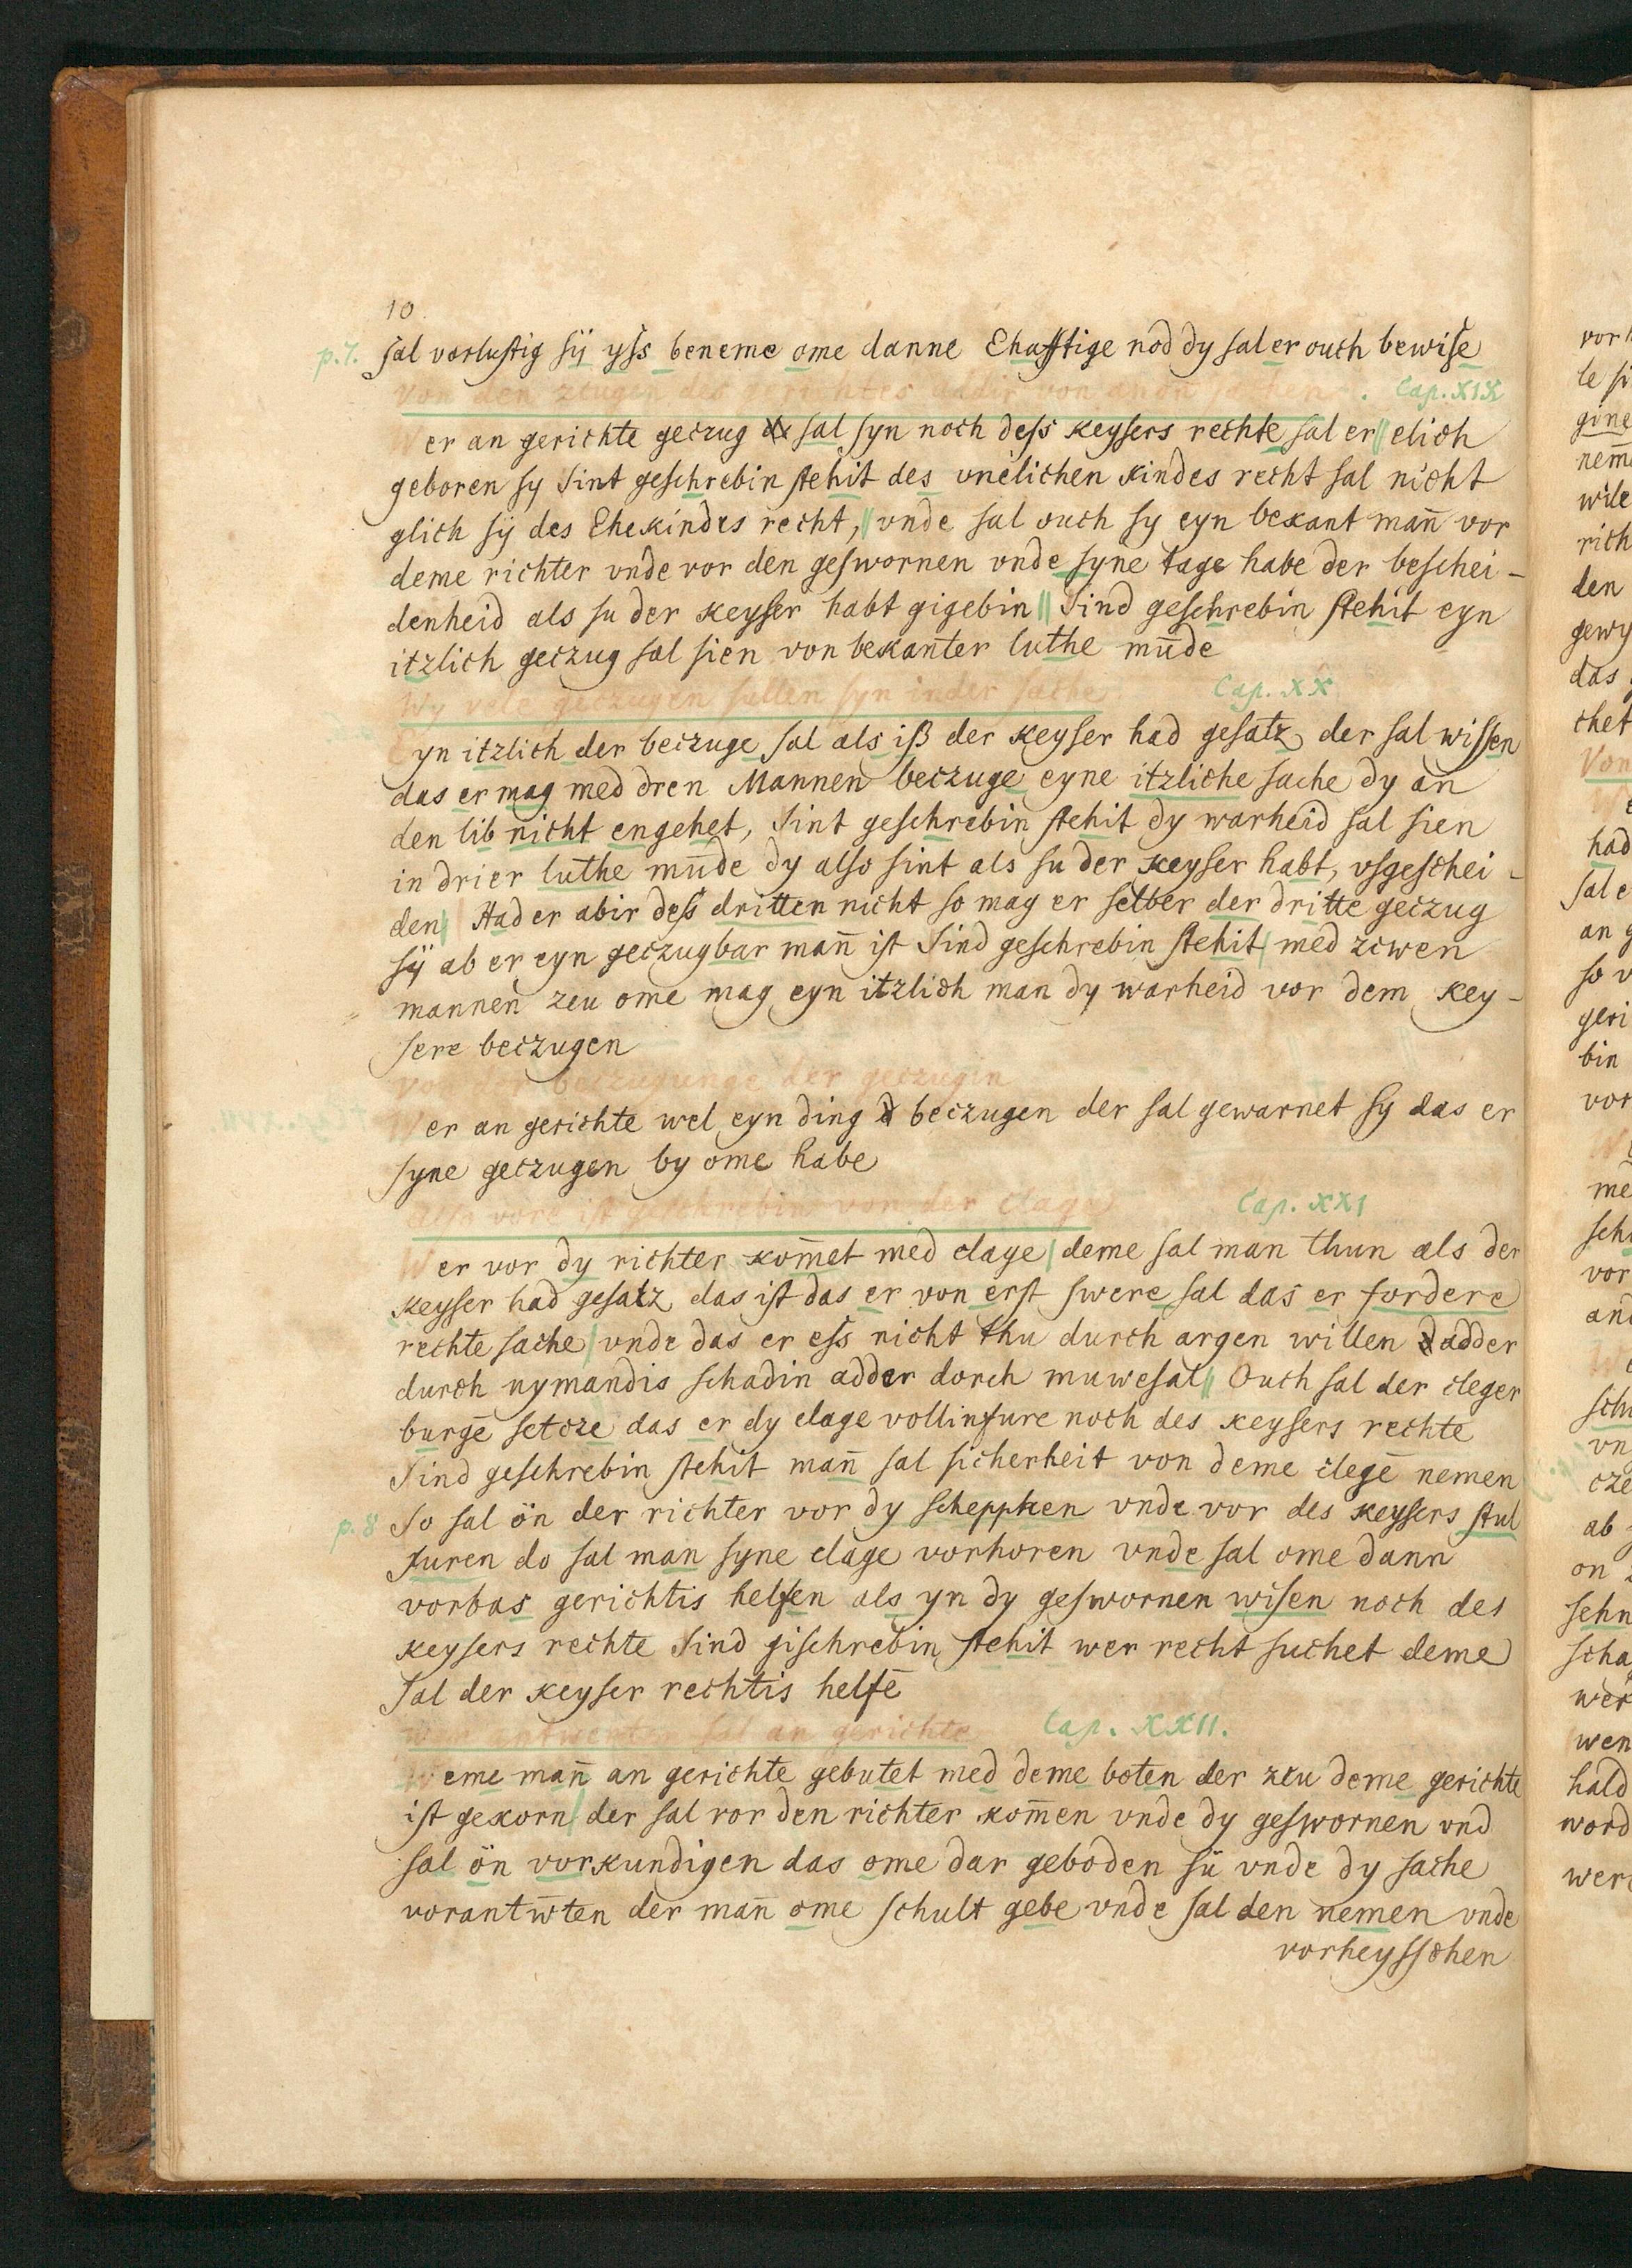 10.
p. 7. sal vorlustig sÿ yss beneme ome danne Ehafftige nod dy sal er ouch bewise
Von den zeugen des richtes addir von andn sachen. Cap. XIX
Wer an gerichte geczug sal syn noch dess keysers rechte sal er || elich
geboren sy Sint geschrebin stehit des vnelichen kindes recht sal nicht
glich sÿ des Ehekindes recht, || vnde sal ouch sy eyn bekant man̄ vor
deme richter vnde vor den geswornen vnde syne tage habe der beschei-
denheid als su der keyser habt gigebin || Sind geschrebin stehit eyn
itzlich geczug sal sien von bekanter luthe mūde
Wy vele geczugen sullen syn in der sache Cap. XX
Eyn itzlich der beczuge sal als iß der keyser had gesatz der sal wissen
das er mag med dren Mannen beczuge eyne itzliche sache dy an
den lib nicht engehet, Sint geschrebin stehit dy warheid sal sien
in drier luthe mūde dy also sint als su der keyser habt, vsgeschei-
den | Had er abir deß dritten nicht so mag er selber der dritte geczug
sÿ ab er eyn geczugbar man̄ ist Sind geschrebin stehit | med zcwen
mannen zcu ome mag eyn itzlich man dy warheid vor dem key-
sere beczugen
von der beczugunge der geczugin
Wer an gerichte wel eyn ding beczugen der sal gewarnet sy das er
syne geczugen by ome habe
Also vore ist geschrebin von der clage Cap. XXI
Wer vor dy richter kom̄et med clage | deme sal man thun als der
keyser had gesatz das ist das er von erst swere sal das er fordere
rechte sache | vnde das er ess nicht thu durch argen willen adder
durch nymandis schadin adder dorch muwesal || Ouch sal der cleger
burgē setcze das er dy clage vollinfure noch des keysers rechte
Sind geschrebin stehit man̄ sal sicherheit von deme clegē nemen
p. 8 So sal ön der richter vor dy scheppken vnde vor des keysers stul
furen do sal man syne clage vorhoren vnde sal ome dann
vorbas gerichtis helfen als yn dy geswornen wisen noch des
keysers rechte Sind gischrebin stehit wer recht suchet deme
Sal der keyser rechtis helfē
antwerten sal an gerichte Cap. XXII.
Weme man̄ an gerichte gebutet med deme boten der zcu deme gerichte
ist gekorn | der sal vor den richter kom̄en vnde dy geswornen vnd
sal ön vorkundigen das ome dar geboden sü vnde dy sache
vorantw̄ten der man̄ ome schult gebe vnde sal den nemen vnde
vorheysschen